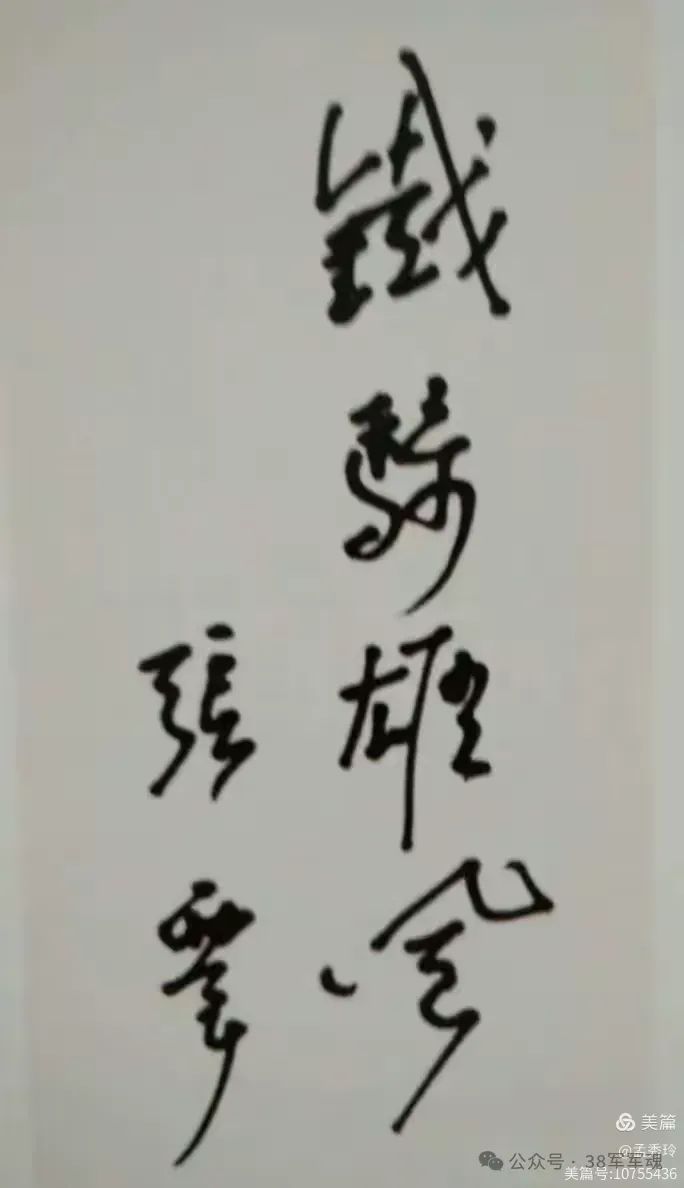 鐵騎雄風
張
美篇
@孟秀玲
公众号 · 38军军魂
美篇号:10755436